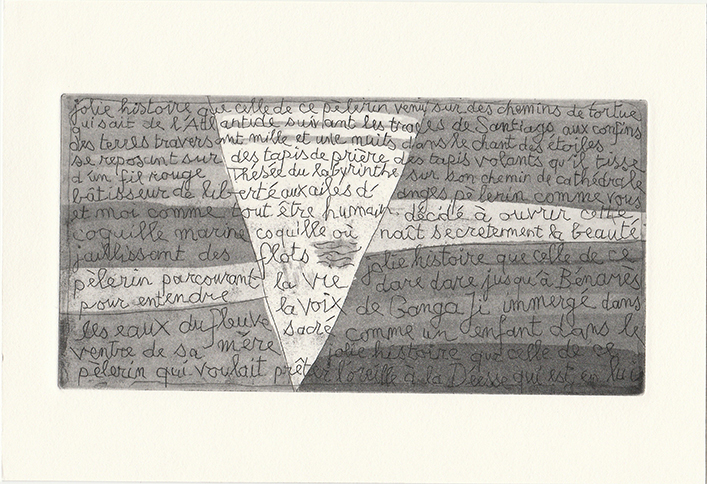 jolie histoire que celle de ce pèlerin venu sur des chemins de tortue
qui sait de l'Atlantide suivant les traces de Santiago aux confins
des terres traversant mille et une nuits dans le chant des étoiles
se reposant sur des tapis de prière des tapis volants qu'il tisse
d'un fil rouge Thésée du labyrinthe sur son chemin de cathédrale
bâtisseur de liberté aux ailes d'anges pèlerin comme vous
et moi comme tout être humain décidé à ouvrir cette
coquille marine coquille où naît secrètement la beauté
jaillissant des flots jolie histoire que celle de ce
pèlerin parcourant la vie dare dare jusqu'à Bénarès
pour entendre la voix de Ganga Ji immergé dans
les eaux du fleuve sacré comme un enfant dans le
ventre de sa mère jolie histoire que celle de ce
pèlerin qui voulait prêter l'oreille à la Déesse qui est en lui